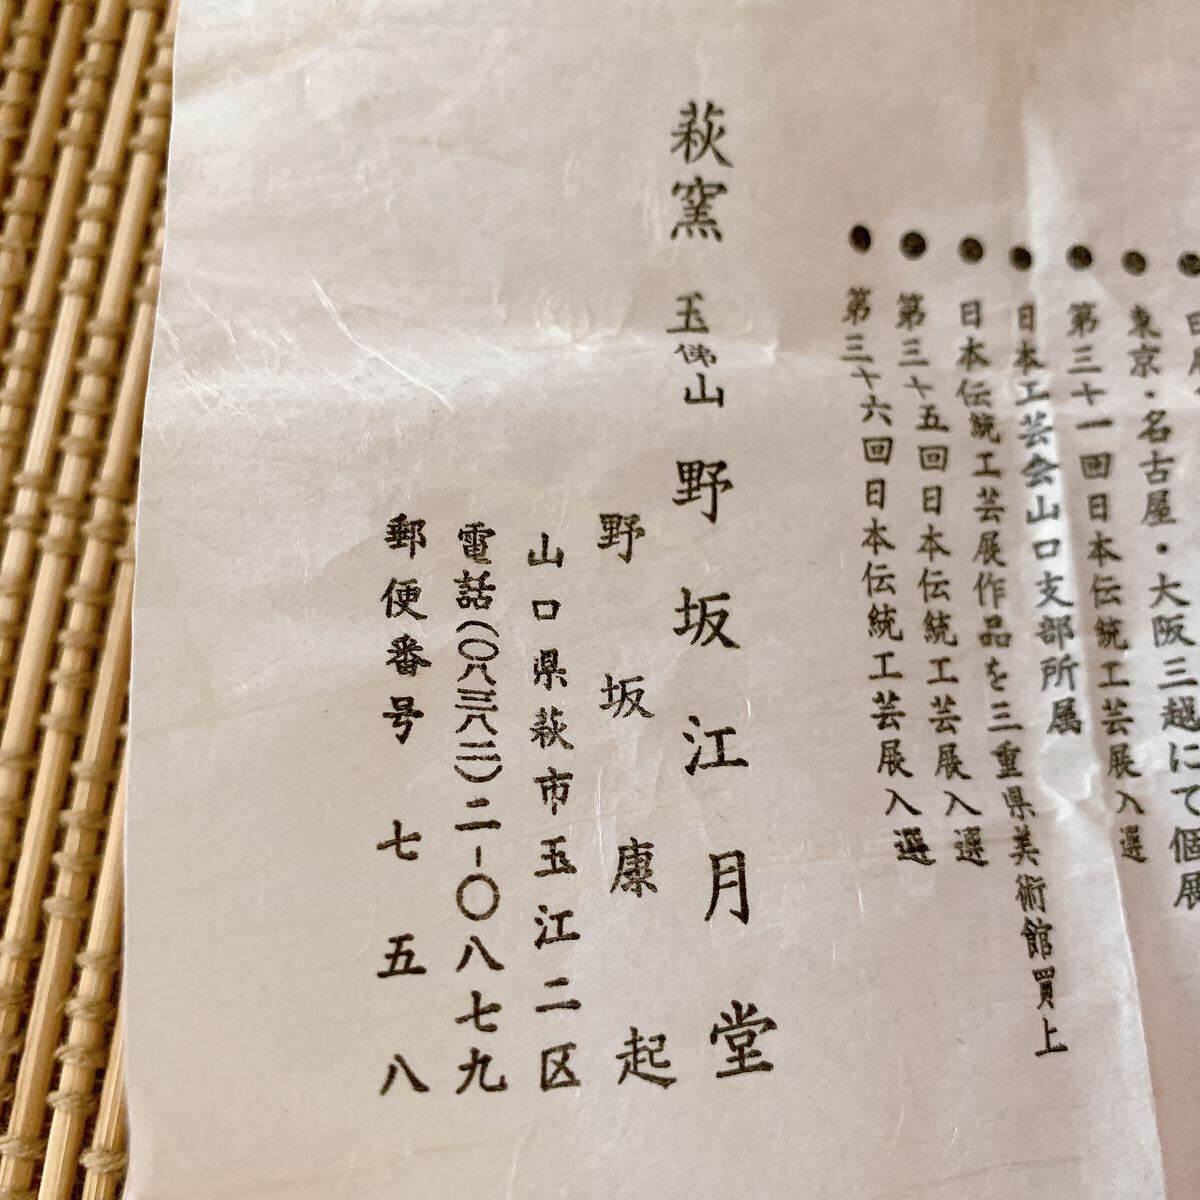 東京・名古屋・大阪三越にて個展
第三十一回日本伝統工芸展入選
日本工芸会山口支部所属
日本伝統工芸展作品を三重県美術館買上
第三十五回日本伝統工芸展入選
第三十六回日本伝統工芸展入選
萩窯 玉佛山 野坂江月堂
野坂康起
山口県萩市玉江二区
電話(〇八三八二)二-〇八七九
郵便番号 七五八